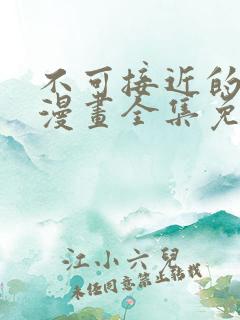 不可接近的
漫畫全集免
江小六兒
未經同意禁止轉載